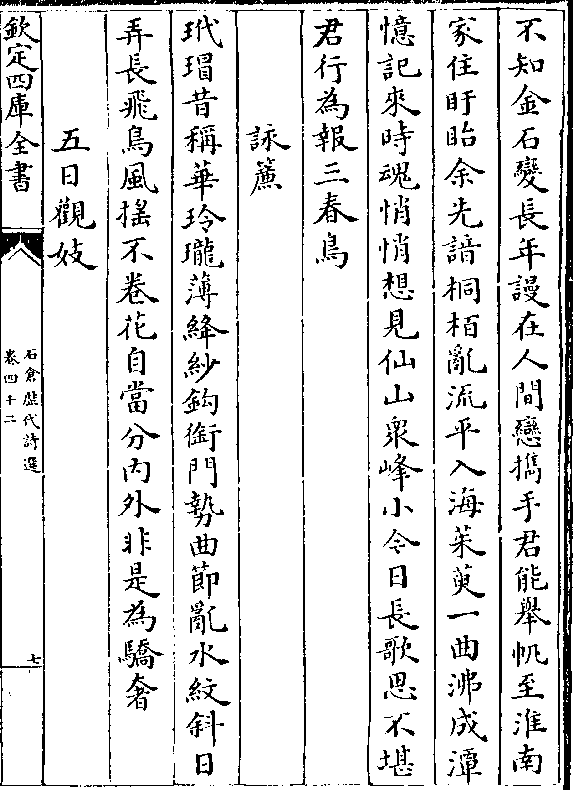 不知金石變長年謾在人間戀攜手君能舉帆至淮南
家住盱眙余先諳桐栢亂流平入海茱萸一曲沸成潭
憶記來時魂悄悄想見仙山衆峰小今日長歌思不堪
君行為報三春鳥
詠簾
玳瑁昔稱華玲瓏薄絳紗鈎銜門勢曲節亂水紋斜日
弄長飛鳥風揺不卷花自當分內外非是為驕奢
五日觀妓
欽定四庫全書
石倉歷代詩選
卷四十二
七